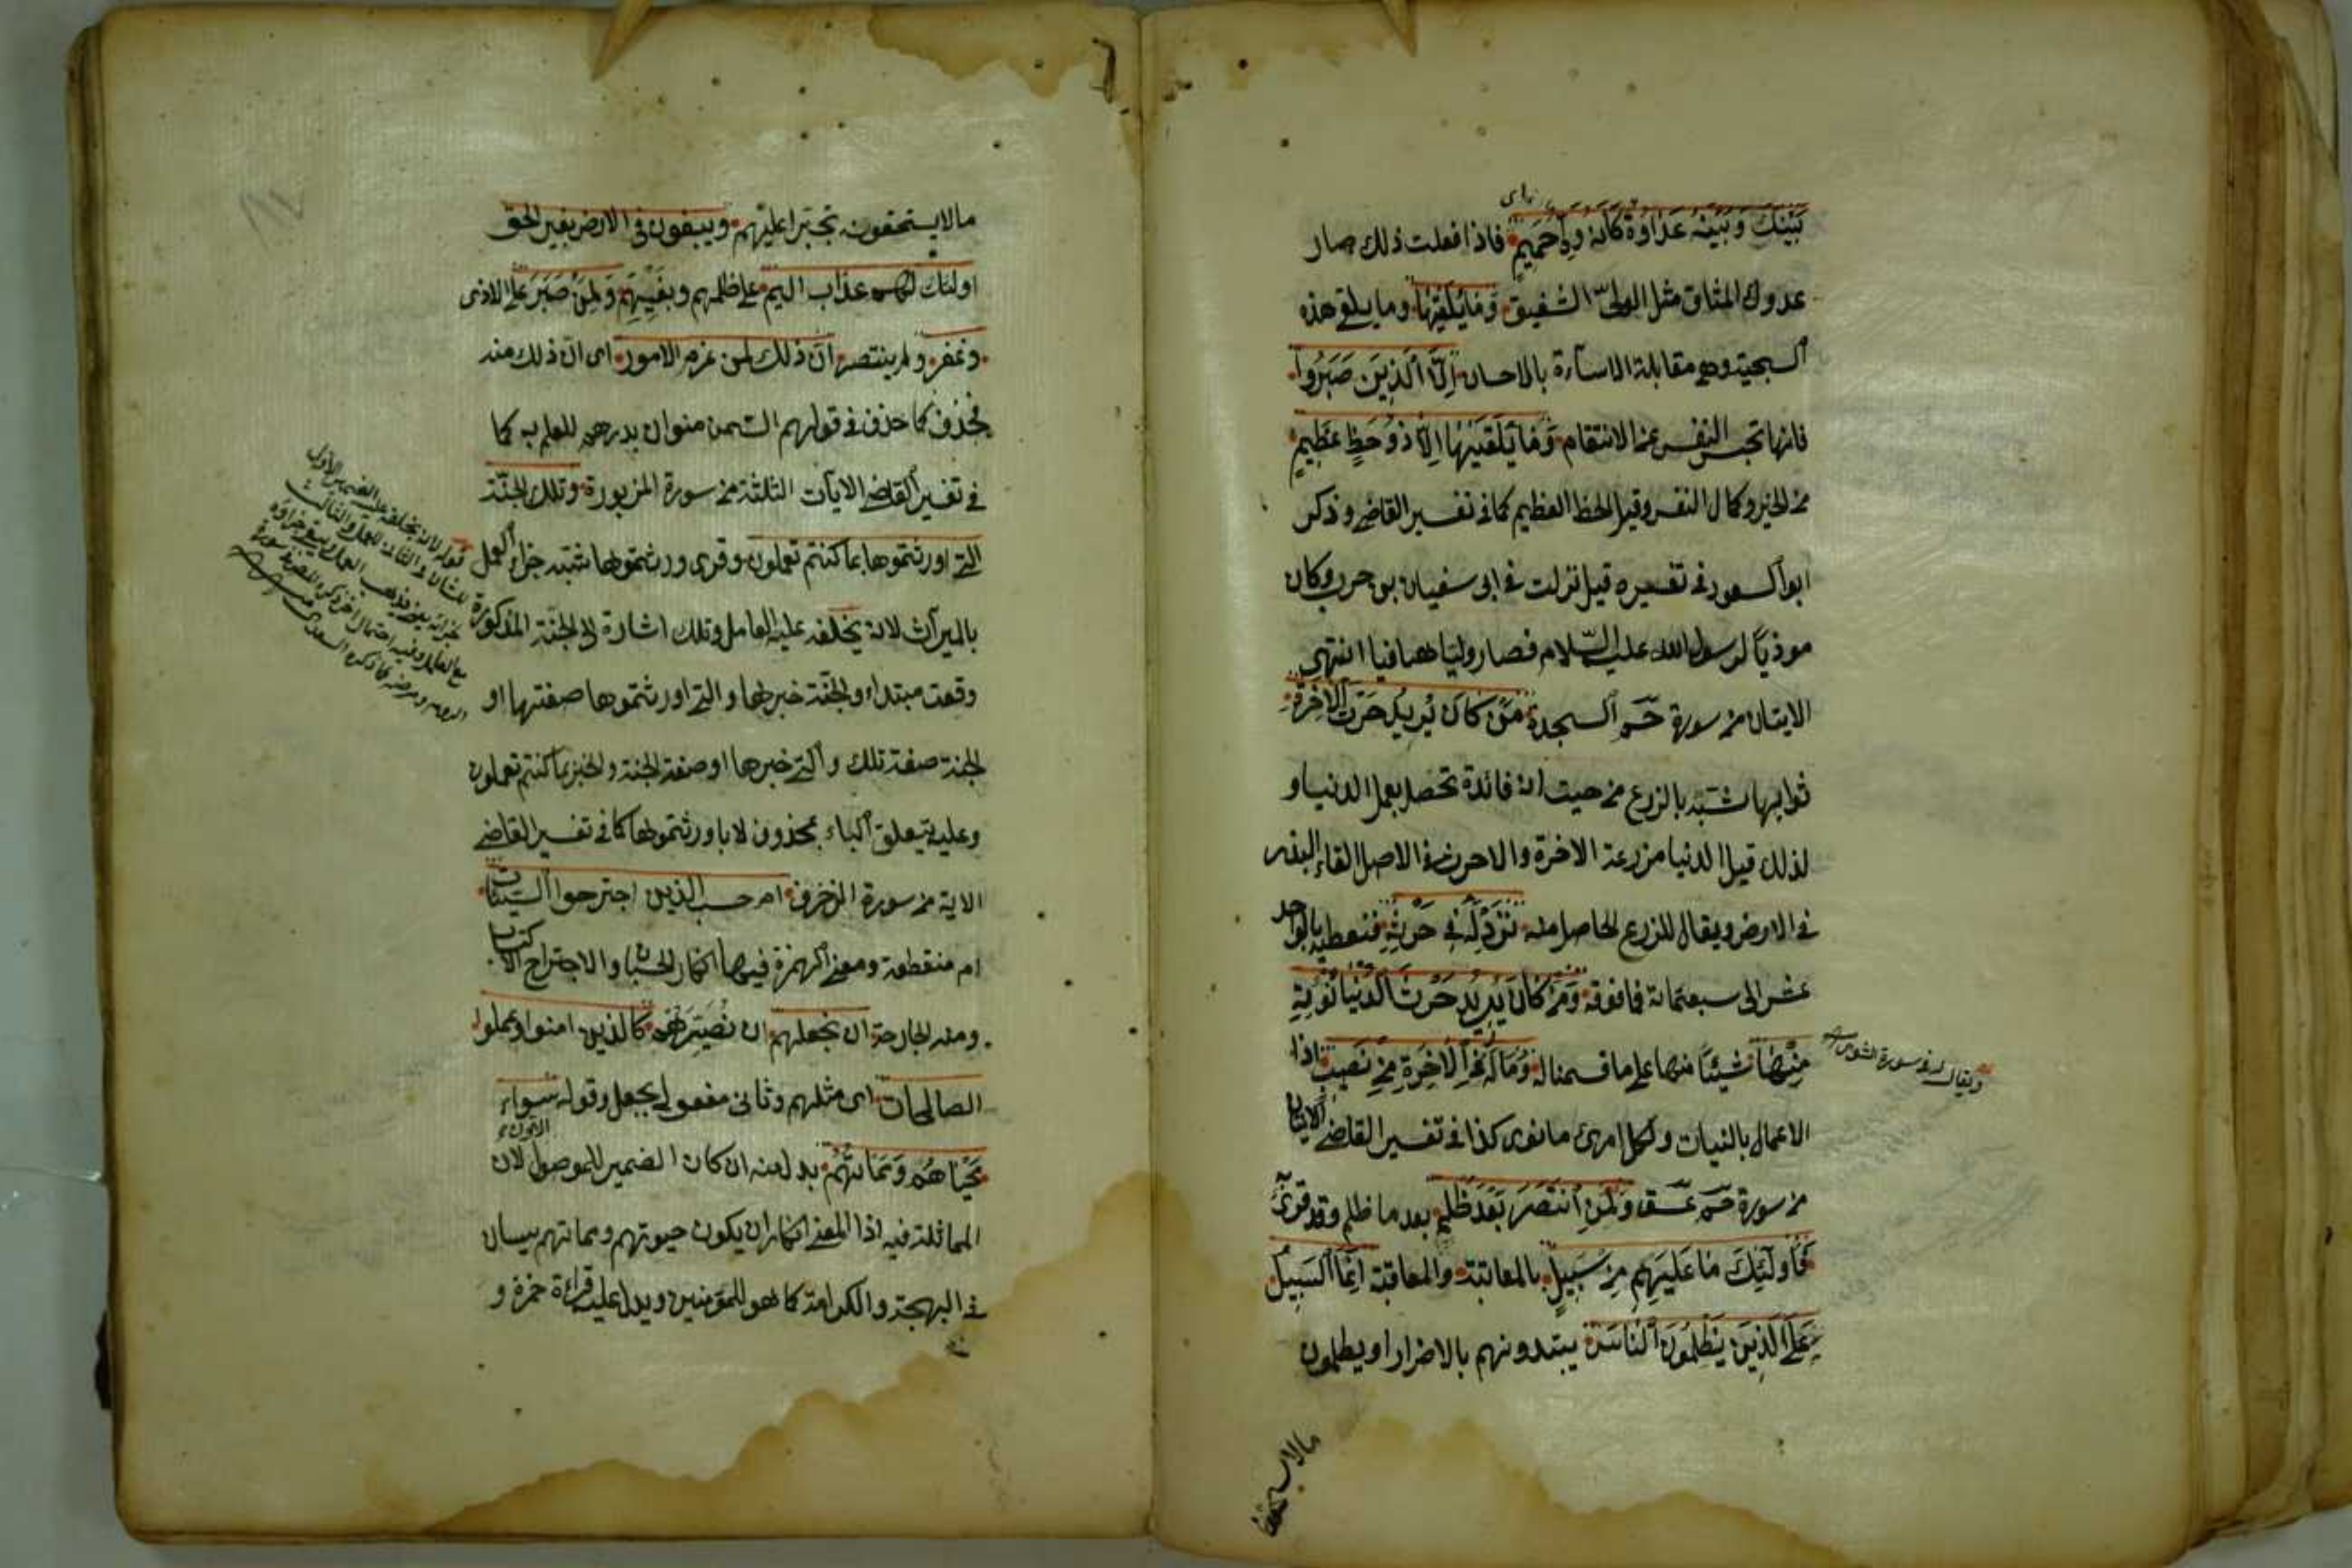 بَيْنَكَ وَبَيْنَهُ عَدَاوَةٌ كَأَنَّهُ وَلِيٌّ حَمِيمٌ فاذا فعلت ذلك صار
عدوك المشاق مثل الولي الشفيق وَمَا يُلَقَّيٰهَا وما يلقى هذه
السجية وهي مقابلة الاساءة بالاحسان اِلَّا الَّذِينَ صَبَرُوا
فانها تحبس النفس عن الانتقام وَمَا يُلَقَّيٰهَا اِلَّا ذُو حَظٍّ عَظِيمٍ
من الخير وكمال النفس وقيل الحظ العظيم كما في تفسير القاضي وذكر
ابو السعود في تفسيره قيل نزلت في ابي سفيان بن حرب وكان
موذيا لرسول الله عليه السلام فصار وليا مصافيا انتهى
الايتان من سورة حم السجدة مَنْ كَانَ يُرِيدُ حَرْثَ الْاٰخِرَةِ
ثوابها شبه بالزرع من حيث انه فائدة تحصل بعمل الدنيا و
لذلك قيل الدنيا مزرعة الاخرة والاحرث في الاصل القاء البذر
في الارض ويقال للزرع الحاصل منه نَزِدْ لَهُ فِي حَرْثِهِ فنعطيه بالواحد
عشرا الى سبعمائة فما فوقه وَمَنْ كَانَ يُرِيدُ حَرْثَ الدُّنْيَا نُؤْتِهِ
مِنْهَا شيئا منها على ما قسمنا له وَمَا لَهُ فِي الْاٰخِرَةِ مِنْ نَصِيبٍ اذا
ويقال له في سورة الشورى
الاعمال بالنيات ولكل امرئ ما نوى كذا في تفسير القاضي الايتان
من سورة حم عسق وَلَمَنِ انْتَصَرَ بَعْدَ ظُلْمِهِ بعد ما ظلم وقد قرئ
فَأُولٰئِكَ مَا عَلَيْهِمْ مِنْ سَبِيلٍ بالمعاتبة والمعاقبة اِنَّمَا السَّبِيلُ
عَلَى الَّذِينَ يَظْلِمُونَ النَّاسَ يبتدونهم بالاضرار او يطلبون
مالا يستحقونه
مالا يستحقونه تجبرا عليهم ويبغون في الارض بغير الحق
اولئك لهم عذاب اليم على ظلمهم وبغيهم وَلَمَنْ صَبَرَ على الاذى
وغفر ولم ينتصر ان ذلك لمن عزم الامور اى ان ذلك منه
فحذف كما حذف في قولهم السمن منوان بدرهم للعلم به كما
في تفسير القاضي الايات الثلثة من سورة المزبورة وتلك الجنة
التي اورثتموها بما كنتم تعملون وقرئ ورثتموها شبه جزاء العمل
بالميراث لانه يخلفه عليه العامل وتلك اشارة الى الجنة المذكورة
وقعت مبتداء والجنة خبرها والتي اورثتموها صفتها او
الجنة صفة تلك والتي خبرها او صفة الجنة والخبر بما كنتم تعملون
وعليه يتعلق الباء بمحذوف لا باورثتموها كما في تفسير القاضي
الاية من سورة الزخرف ام حسب الذين اجترحوا السيئات
ام منقطعة ومعنى الهمزة فيها انكار الحسبان والاجتراح الاكتساب
ومنه الجارحة ان نجعلهم ان نصيرهم كالذين امنوا وعملوا
الصالحات اى مثلهم وثانى مفعولي يجعل وقوله سَوَاءً
مَحْيَاهُمْ وَمَمَاتُهُمْ بدل منه ان كان الضمير للموصول الاول لان
المماثلة فيه اذا المعنى انكار ان يكون حيوتهم ومماتهم سيان
في البهجة والكرامة كما هو للمؤمنين ويدل عليه قراءة حمزة و